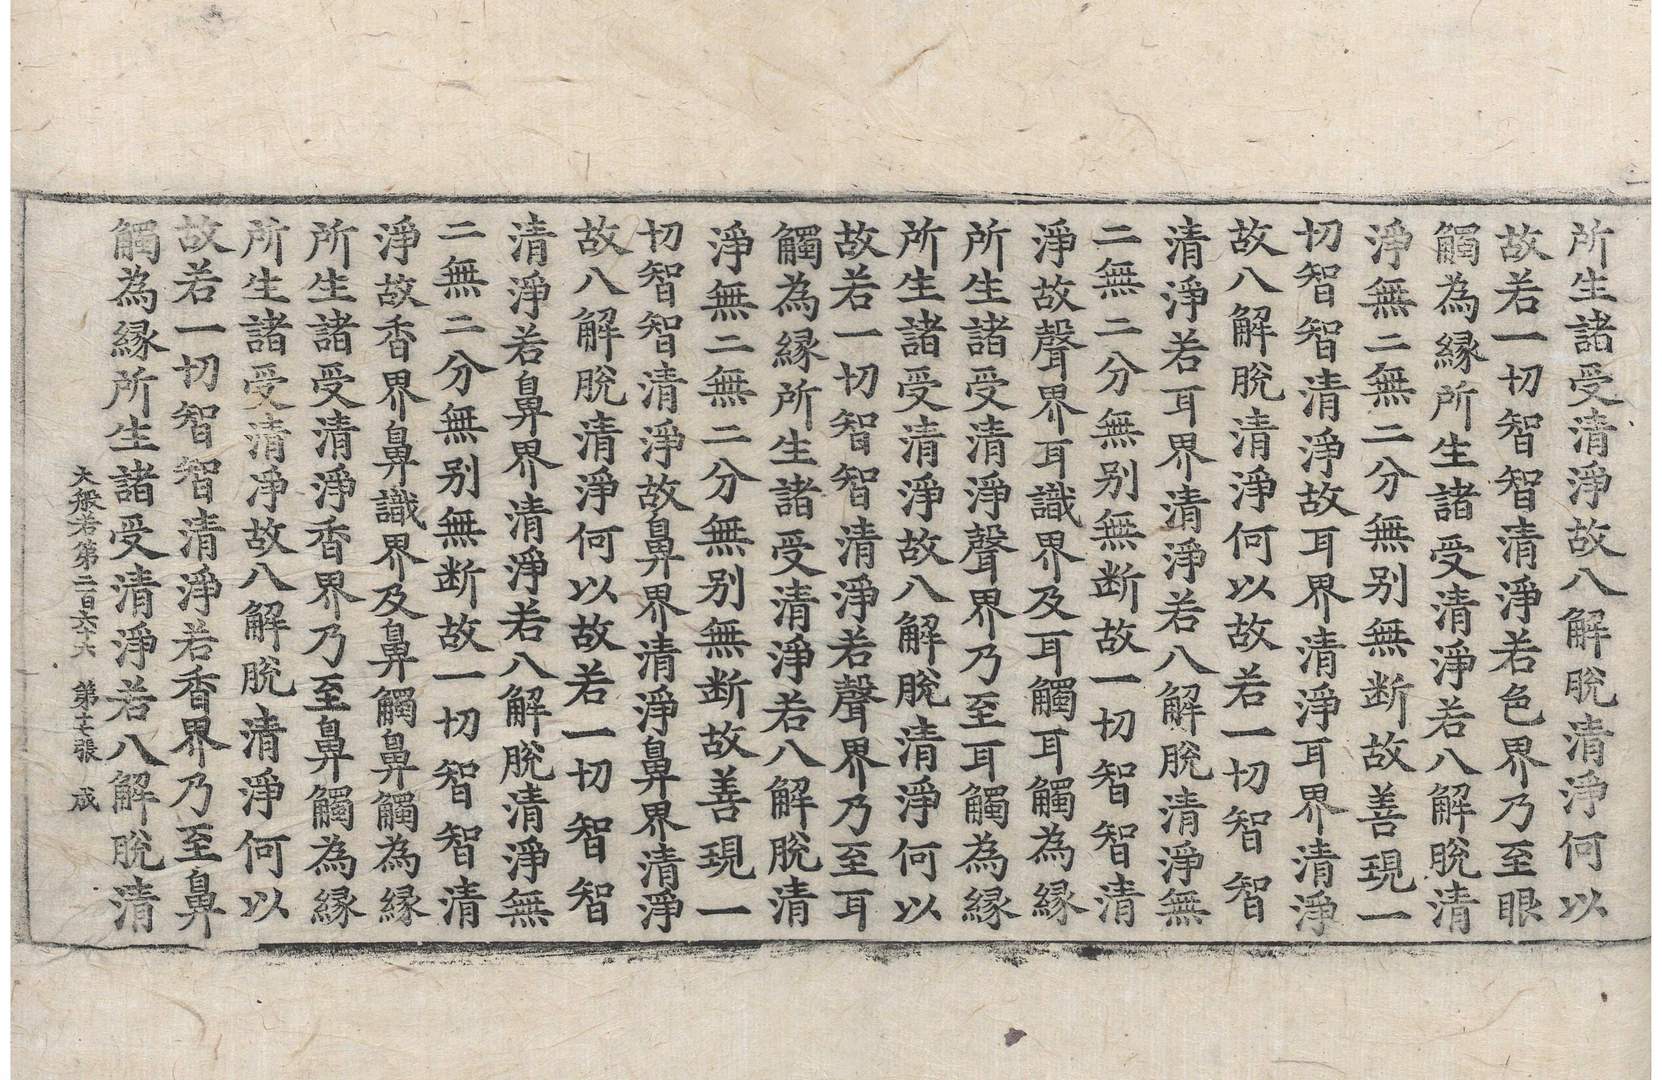 所生諸受清淨故八解脫清淨何以
故若一切智智清淨若色界乃至眼
觸為緣所生諸受清淨若八解脫清
淨無二無二分無別無斷故善現一
切智智清淨故耳界清淨耳界清淨
故八解脫清淨何以故若一切智智
清淨若耳界清淨若八解脫清淨無
二無二分無別無斷故一切智智清
淨故聲界耳識界及耳觸耳觸為緣
所生諸受清淨聲界乃至耳觸為緣
所生諸受清淨故八解脫清淨何以
故若一切智智清淨若聲界乃至耳
觸為緣所生諸受清淨若八解脫清
淨無二無二分無別無斷故善現一
切智智清淨故鼻界清淨鼻界清淨
故八解脫清淨何以故若一切智智
清淨若鼻界清淨若八解脫清淨無
二無二分無別無斷故一切智智清
淨故香界鼻識界及鼻觸鼻觸為緣
所生諸受清淨香界乃至鼻觸為緣
所生諸受清淨故八解脫清淨何以
故若一切智智清淨若香界乃至鼻
觸為緣所生諸受清淨若八解脫清
大般若第二百六十六 第十七張 咸